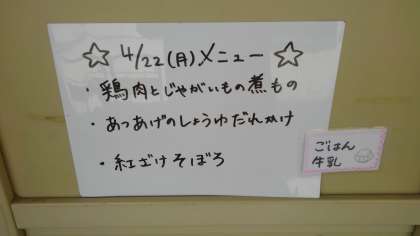 ☆ 4/22(月)メニュー ☆
・鶏肉とじゃがいもの煮もの
・あつあげのしょうゆだれかけ
・紅ざけそぼろ
ごはん
牛乳